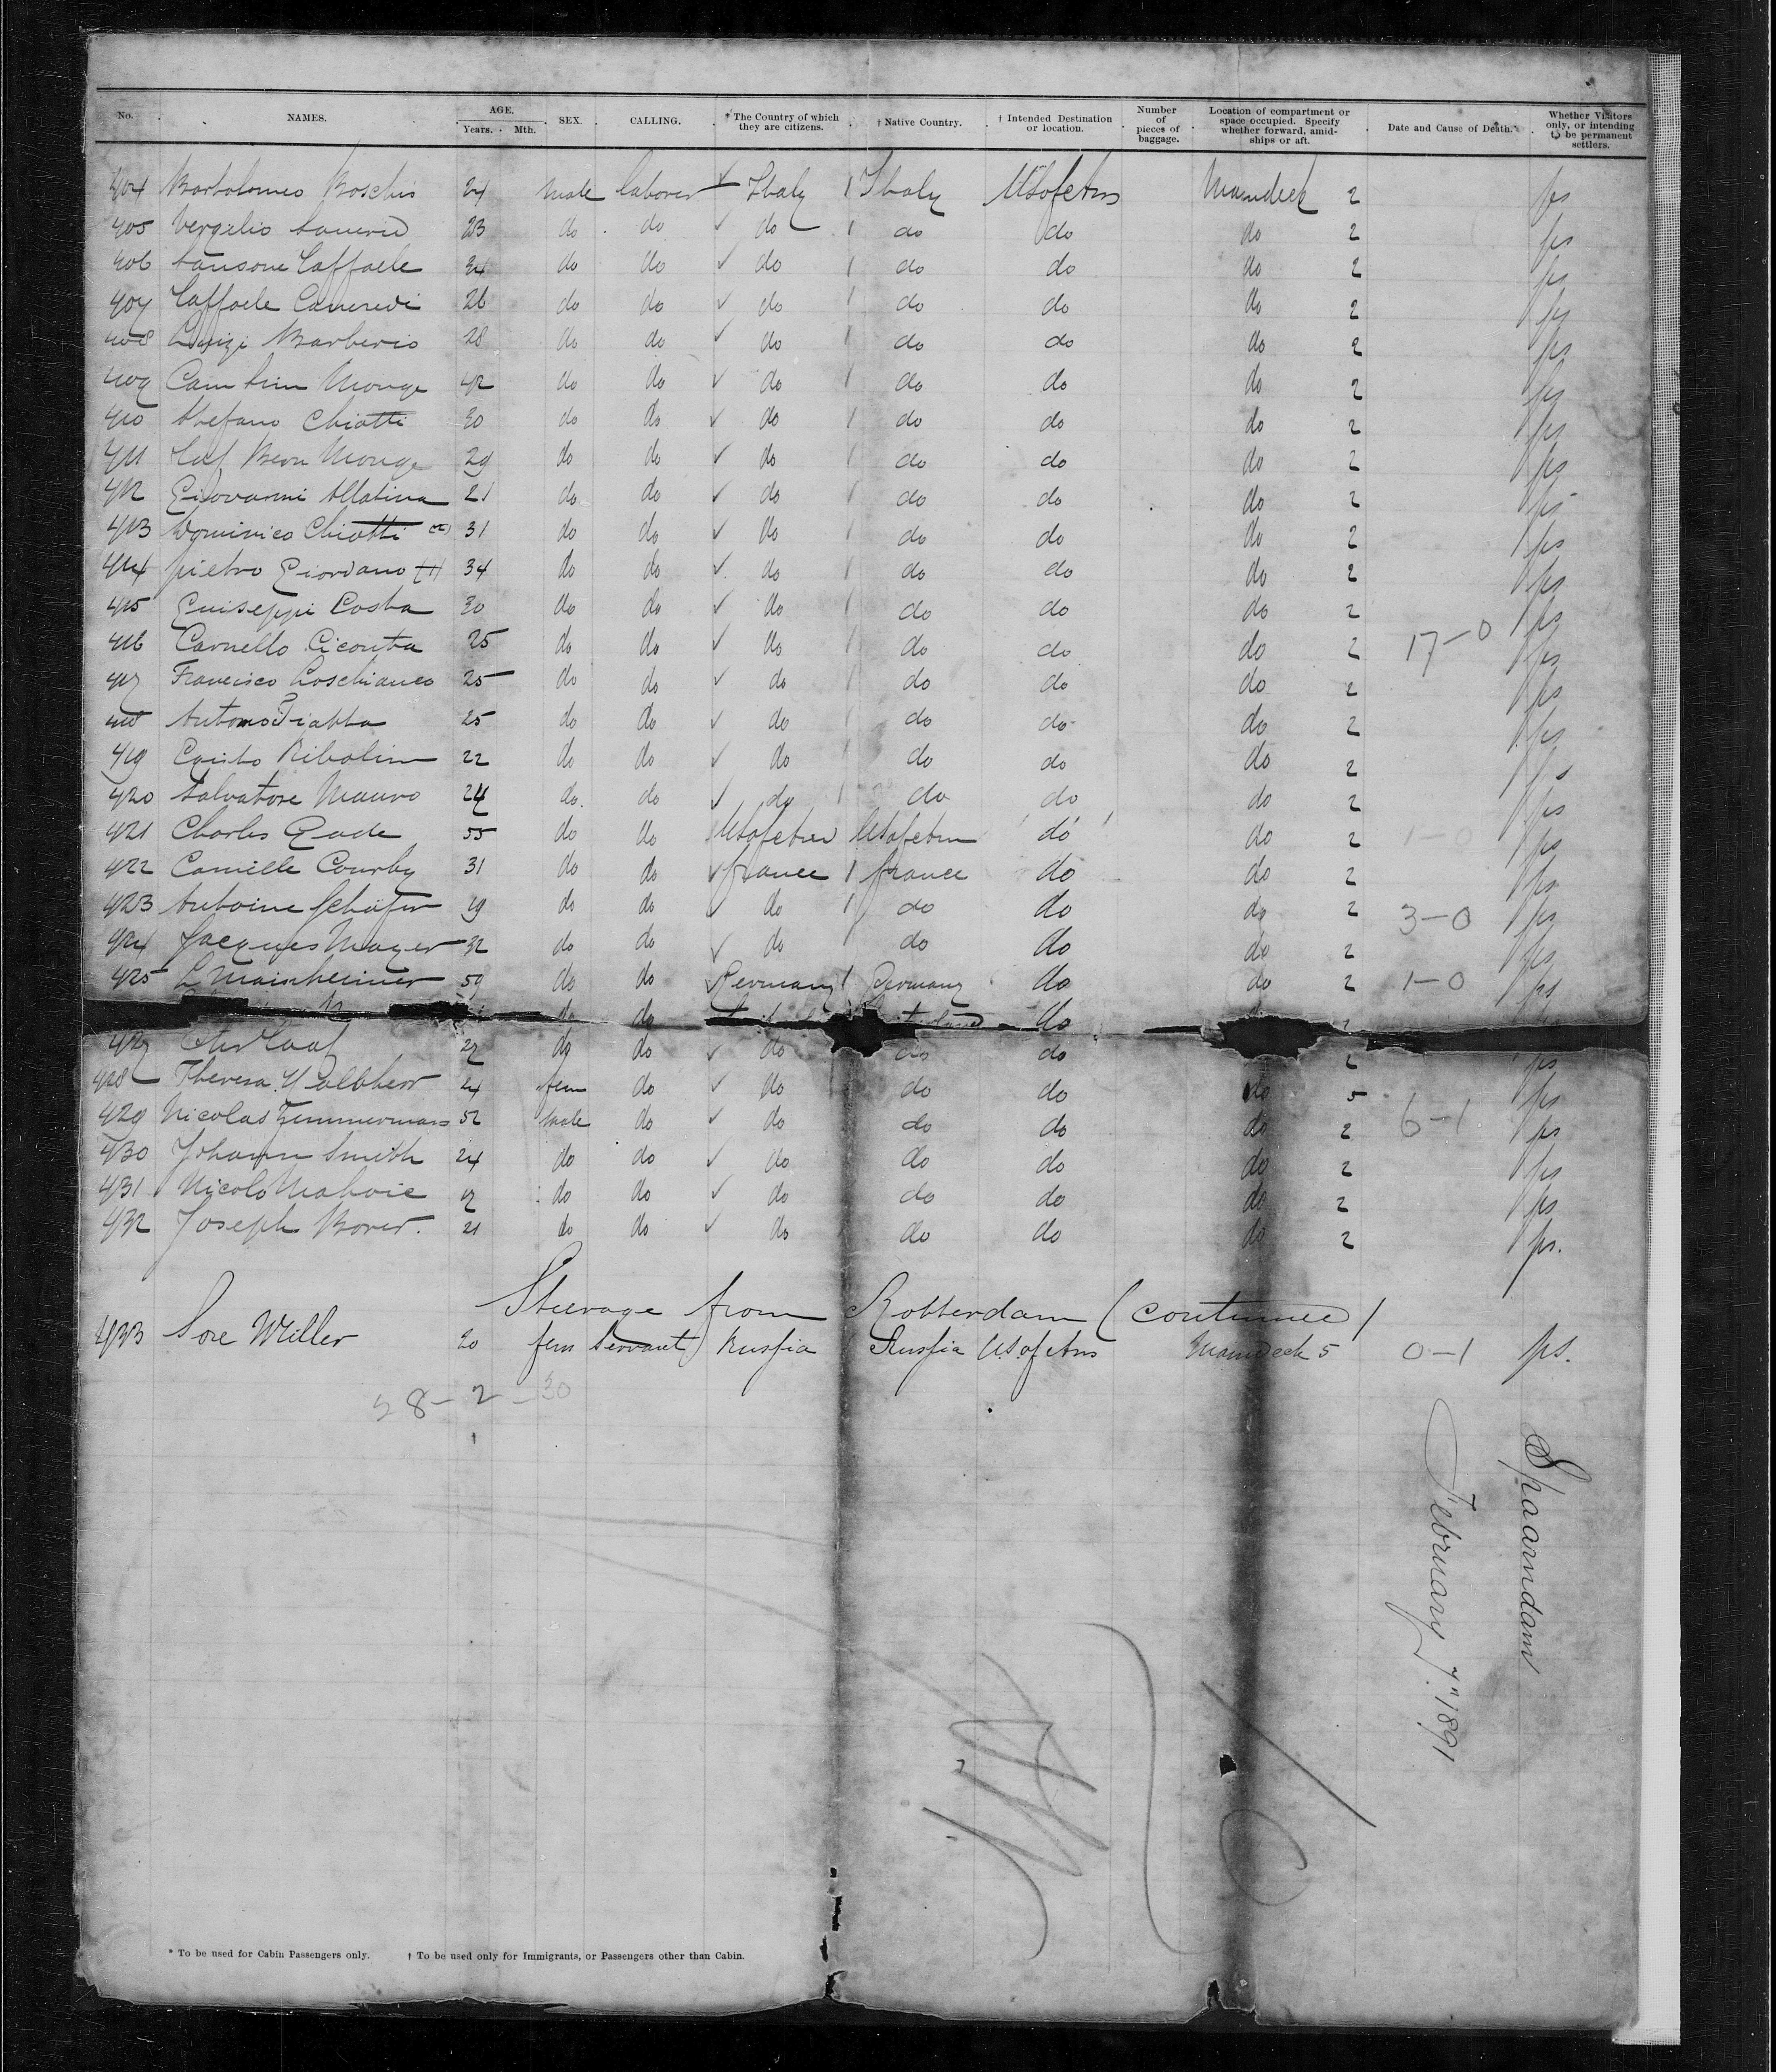 No. NAMES. AGE. Years. Mth. SEX. CALLING. * The Country of which they are citizens. † Native Country. † Intended Destination or location. Number of pieces of baggage. Location of compartment or space occupied. Specify whether forward, amidships or aft. Date and Cause of Death. Whether Visitors only, or intending to be permanent settlers.
404 Bartolomeo Boschis 24 male laborer Italy Italy USofAm Maindeck 2 ps
405 Vergilio 23 do do do do do do 2 ps
406 Sansone Caffaele 34 do do do do do do 2 ps
407 Caffaele 26 do do do do do do 2 ps
408 Luigi Barberis 28 do do do do do do 2 ps
409 Monge 42 do do do do do do 2 ps
410 Stefano Chiotti 30 do do do do do do 2 ps
411 Monge 29 do do do do do do 2 ps
412 Giovanni Allatina 21 do do do do do do 2 ps
413 Dominico Chiotti 31 do do do do do do 2 ps
414 pietro Giordano 34 do do do do do do 2 ps
415 Guiseppi Costa 30 do do do do do do 2 ps
416 Carnello Ciconta 25 do do do do do do 2 17-0 ps
417 Francisco Loschiavco 25 do do do do do do 2 ps
418 Antonio 25 do do do do do do 2 ps
419 Ribolin 22 do do do do do do 2
420 Salvatore Mauro 24 do do do do do do 2 ps
421 Charles Gade 55 do do USofAm USofAm do do 2 1-0 ps
422 Camille Courby 31 do do france france do do 2 ps
423 Antoine Schäfer 29 do do do do do do 2 3-0 ps
424 Jacques Mayer 32 do do do do do do 2 ps
425 L Mainheimer 59 do do Germany Germany do do 2 1-0 ps
do do do
427 27 do do do do do 2 ps
428 Theresa Walbherr 24 fem do do do do do 5 ps
429 Nicolas Zimmermans 52 male do do do do do 2 6-1 ps
430 Johann Smith 24 do do do do do do 2 ps
431 Nicolo do do do do do do 2 ps
432 Joseph Borer. 21 do do do do do do 2 ps.
Steerage from Rotterdam (continuee)
433 Sore Willer 20 fem servant Russia Russia U.S.of Am Maindeck 5 0-1 ps.
28-2-30
Spaarndam
February 7" 1891
* To be used for Cabin Passengers only. † To be used only for Immigrants, or Passengers other than Cabin.